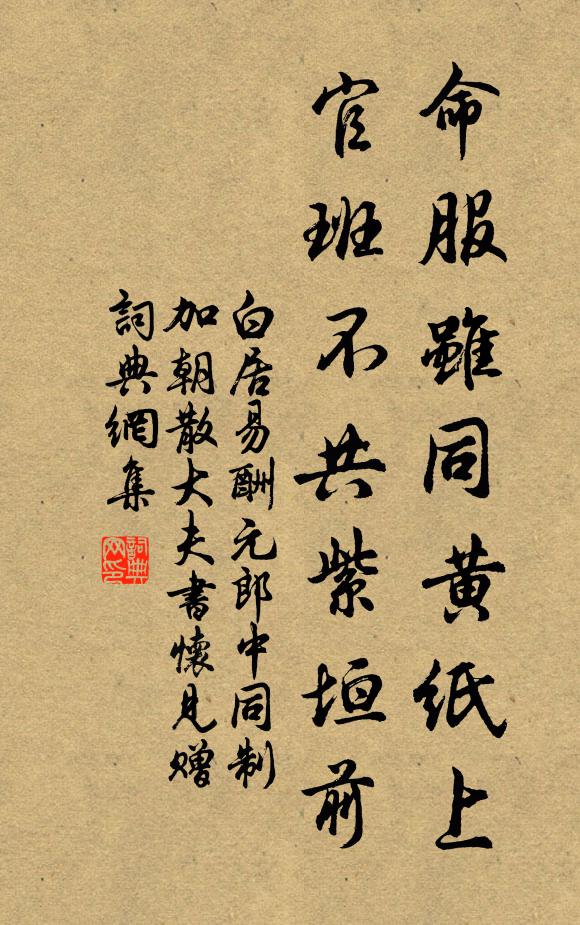 命服雖同黄紙上
官班不共紫垣前
白居易酬元郎中同制
加朝散大夫書懷見赠
詞典網集
詞典
网印